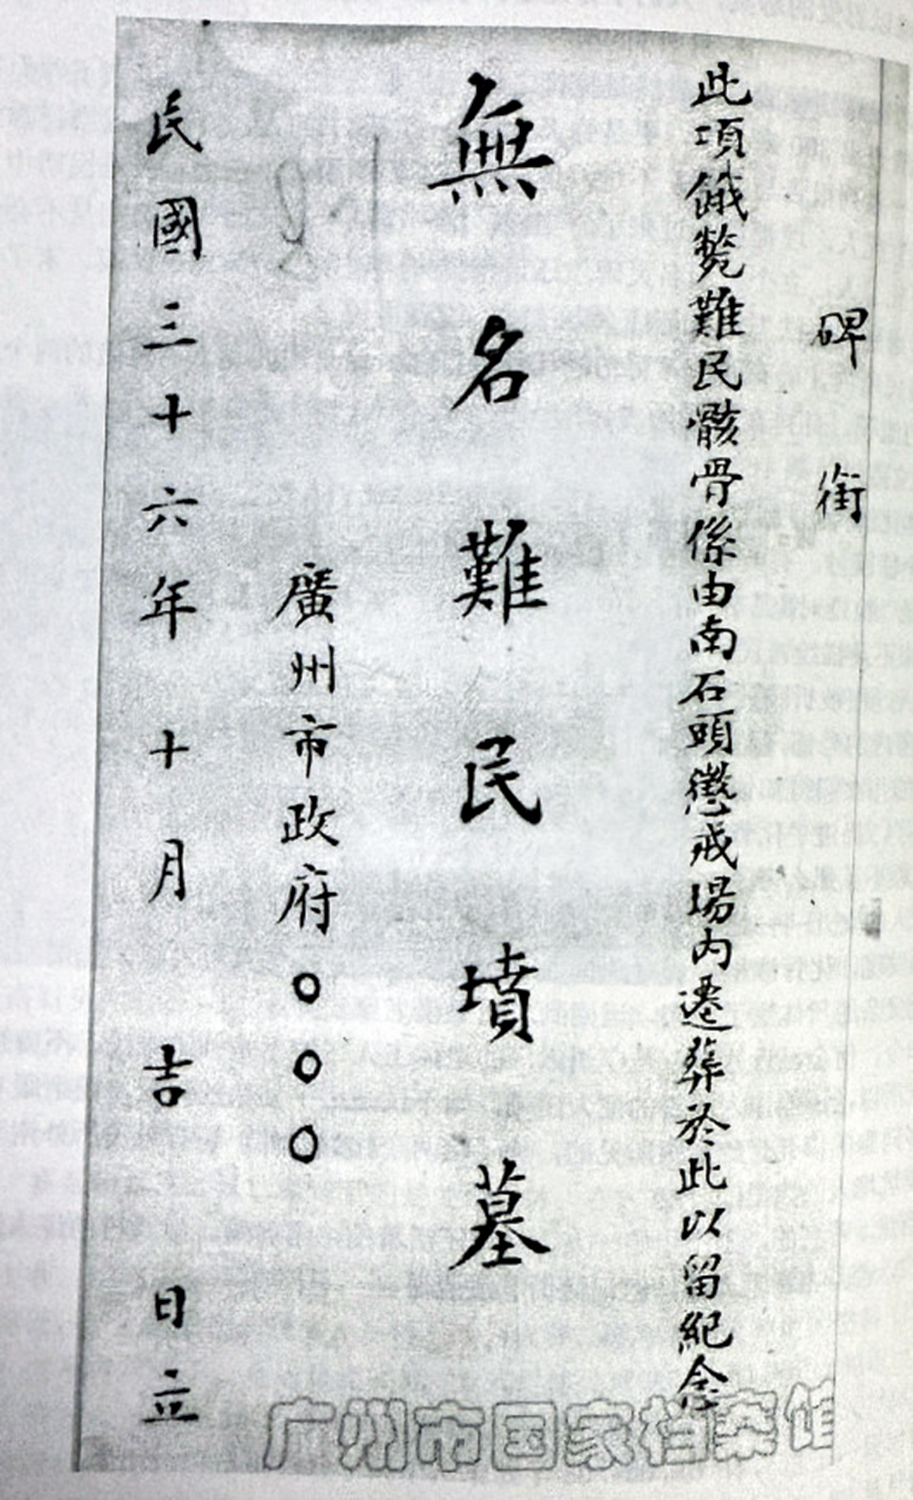 碑銜
此項餓斃難民骸骨係由南石頭懲戒場內遷葬於此以留紀念
無名難民墳墓
廣州市政府○○○
民國三十六年十月吉日立
广州市国家档案馆